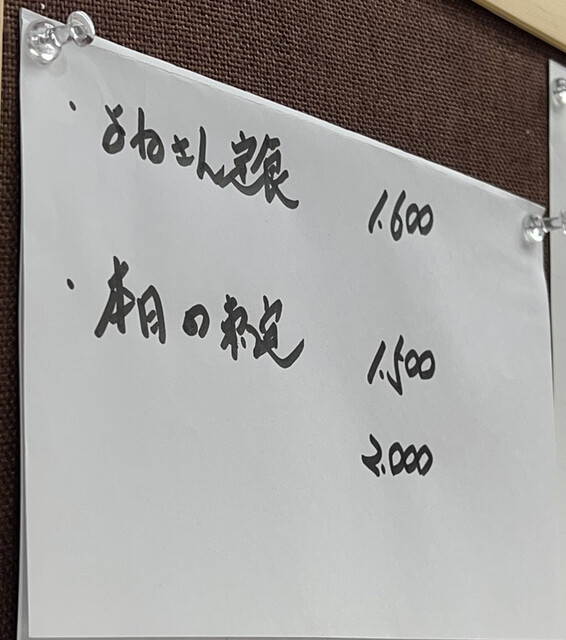 ・よねさん定食 1.600
・本日の定 1.500
2.000